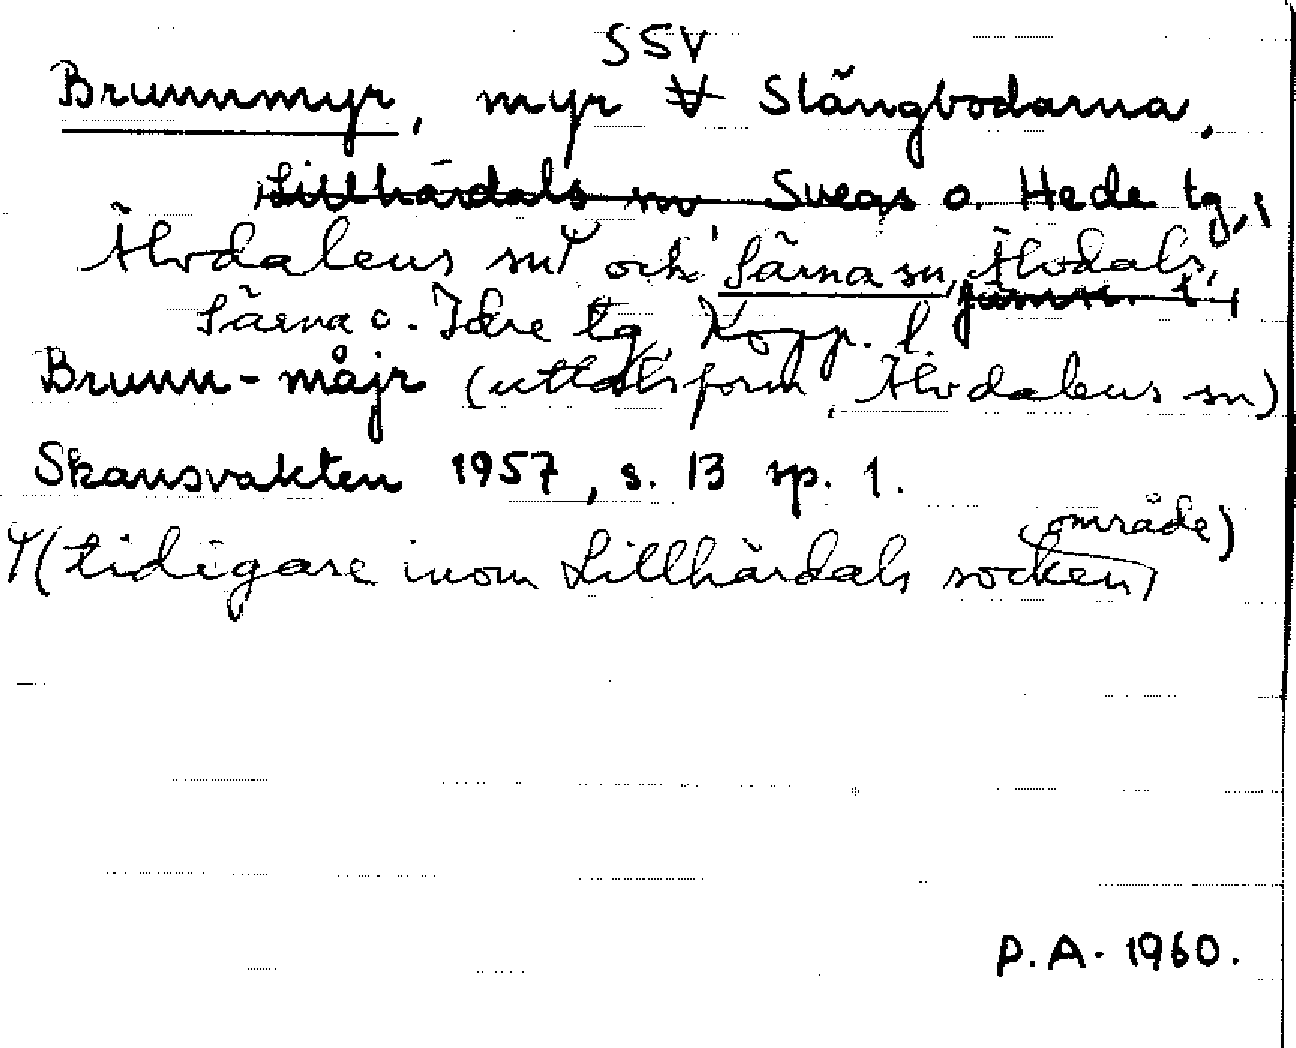 SSV
Brunnmyr, myr V Slängbodarna,
Lillhärdals sn Svegs o. Hede tg,
Älvdalens sn och Särna sn, Älvdals,
Jämtl. l.,
Särna o. Idre tg, Kopp. l.
Brunn-måjr (uttalsform, Älvdalens sn)
Skansvakten 1957, s. 13 sp. 1.
(tidigare inom Lillhärdals socken
område)
P.A. 1960.